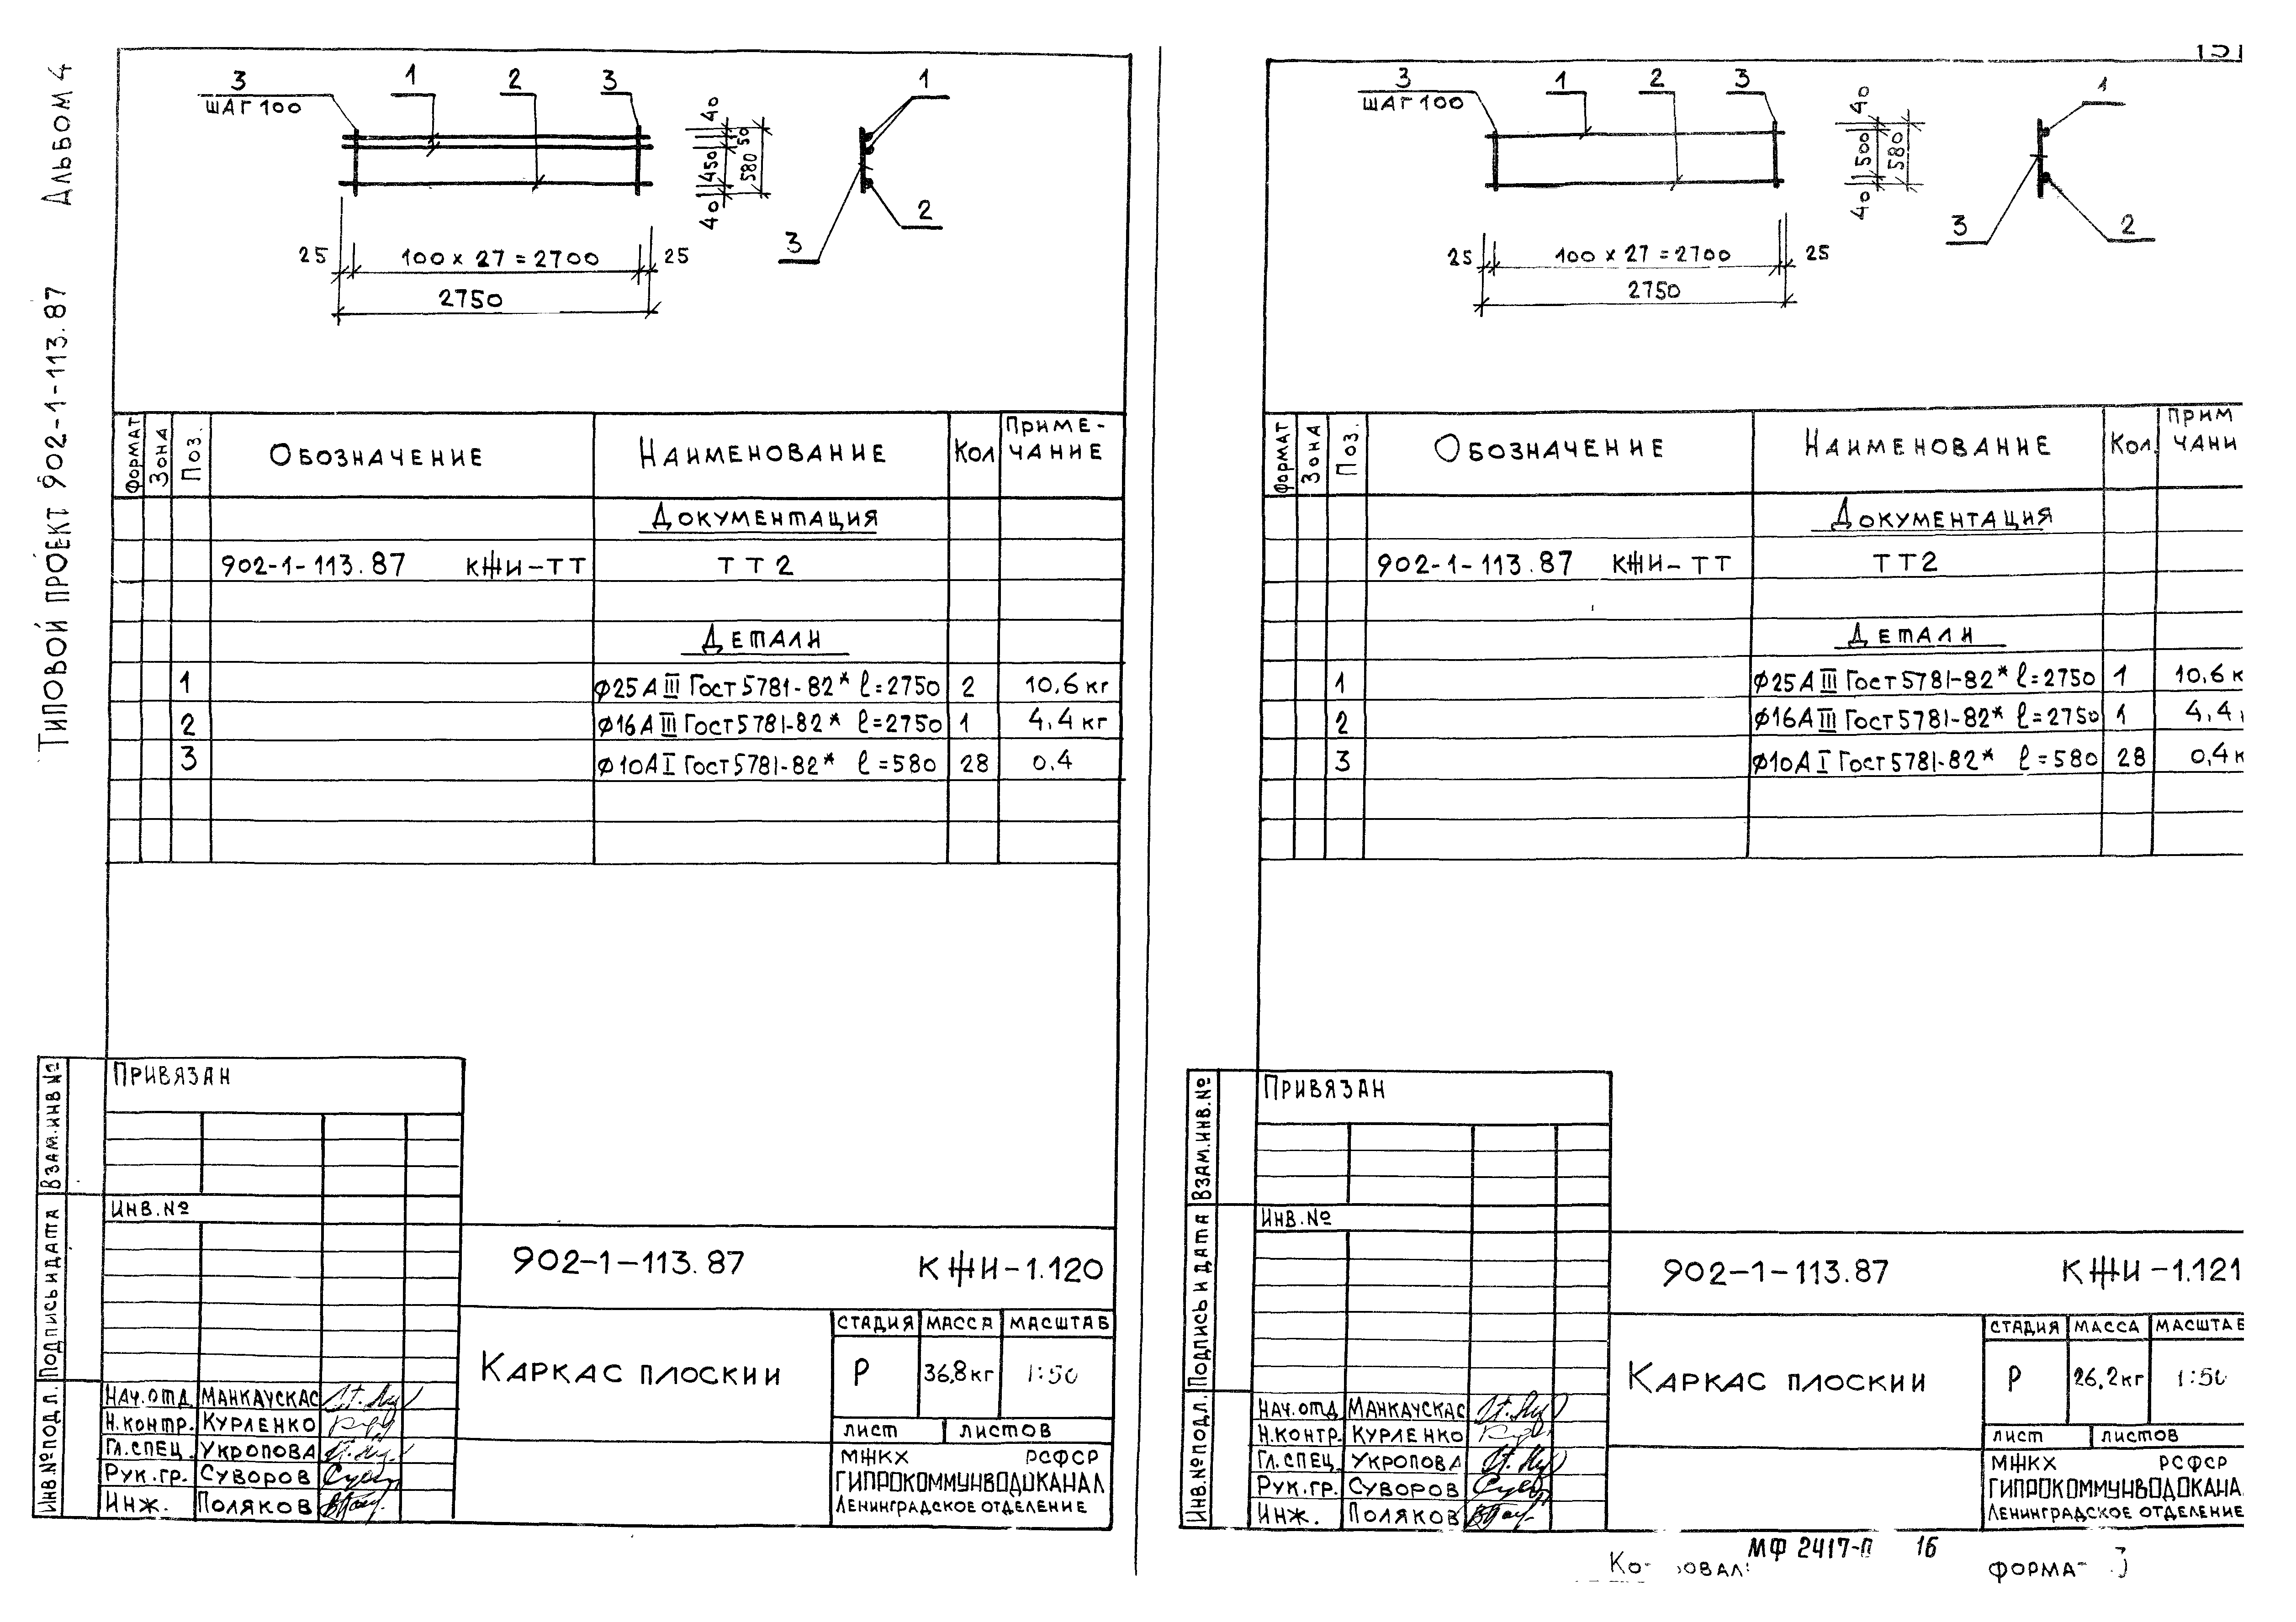 Альбом 4
Типовой проект 902-1-113.87
3 1 2 3 1
шаг 100
40
50
450
580
40
2
3
25 100 x 27 = 2700 25
2750
Формат Зона Поз. Обозначение Наименование Кол Приме-
чание
Документация
902-1-113.87 КЖИ-ТТ ТТ2
Детали
1 ϕ25АIII Гост 5781-82* ℓ=2750 2 10,6 кг
2 ϕ16АIII Гост 5781-82* ℓ=2750 1 4,4 кг
3 ϕ10АI Гост 5781-82* ℓ=580 28 0,4
Привязан
Инв.№
Взам.инв №
Подпись и дата
Инв.№ подл.
902-1-113.87 КЖИ-1.120
Каркас плоский
стадия масса масштаб
Р 36,8кг 1:50
лист листов
МЖКХ РСФСР
Гипрокоммунводоканал
Ленинградское отделение
Нач.отд. Манкаускас
Н.контр. Курленко
Гл.спец. Укропова
Рук.гр. Суворов
Инж. Поляков
151
3 1 2 3 1
шаг 100
40
500
580
40
3 2
25 100 x 27 = 2700 25
2750
Формат Зона Поз. Обозначение Наименование Кол. Прим
чани
Документация
902-1-113.87 КЖИ-ТТ ТТ2
Детали
1 ϕ25АIII Гост 5781-82* ℓ=2750 1 10,6 к
2 ϕ16АIII Гост 5781-82* ℓ=2750 1 4,4
3 ϕ10АI Гост 5781-82* ℓ=580 28 0,4 к
Привязан
Инв.№
Взам.инв.№
Подпись и дата
Инв.№ подл.
902-1-113.87 КЖИ-1.121
Каркас плоский
стадия масса масштаб
Р 26,2кг 1:50
лист листов
МЖКХ РСФСР
Гипрокоммунводокана
Ленинградское отделение
Нач.отд. Манкаускас
Н.контр. Курленко
Гл.спец. Укропова
Рук.гр. Суворов
Инж. Поляков
МФ 2417-П 16